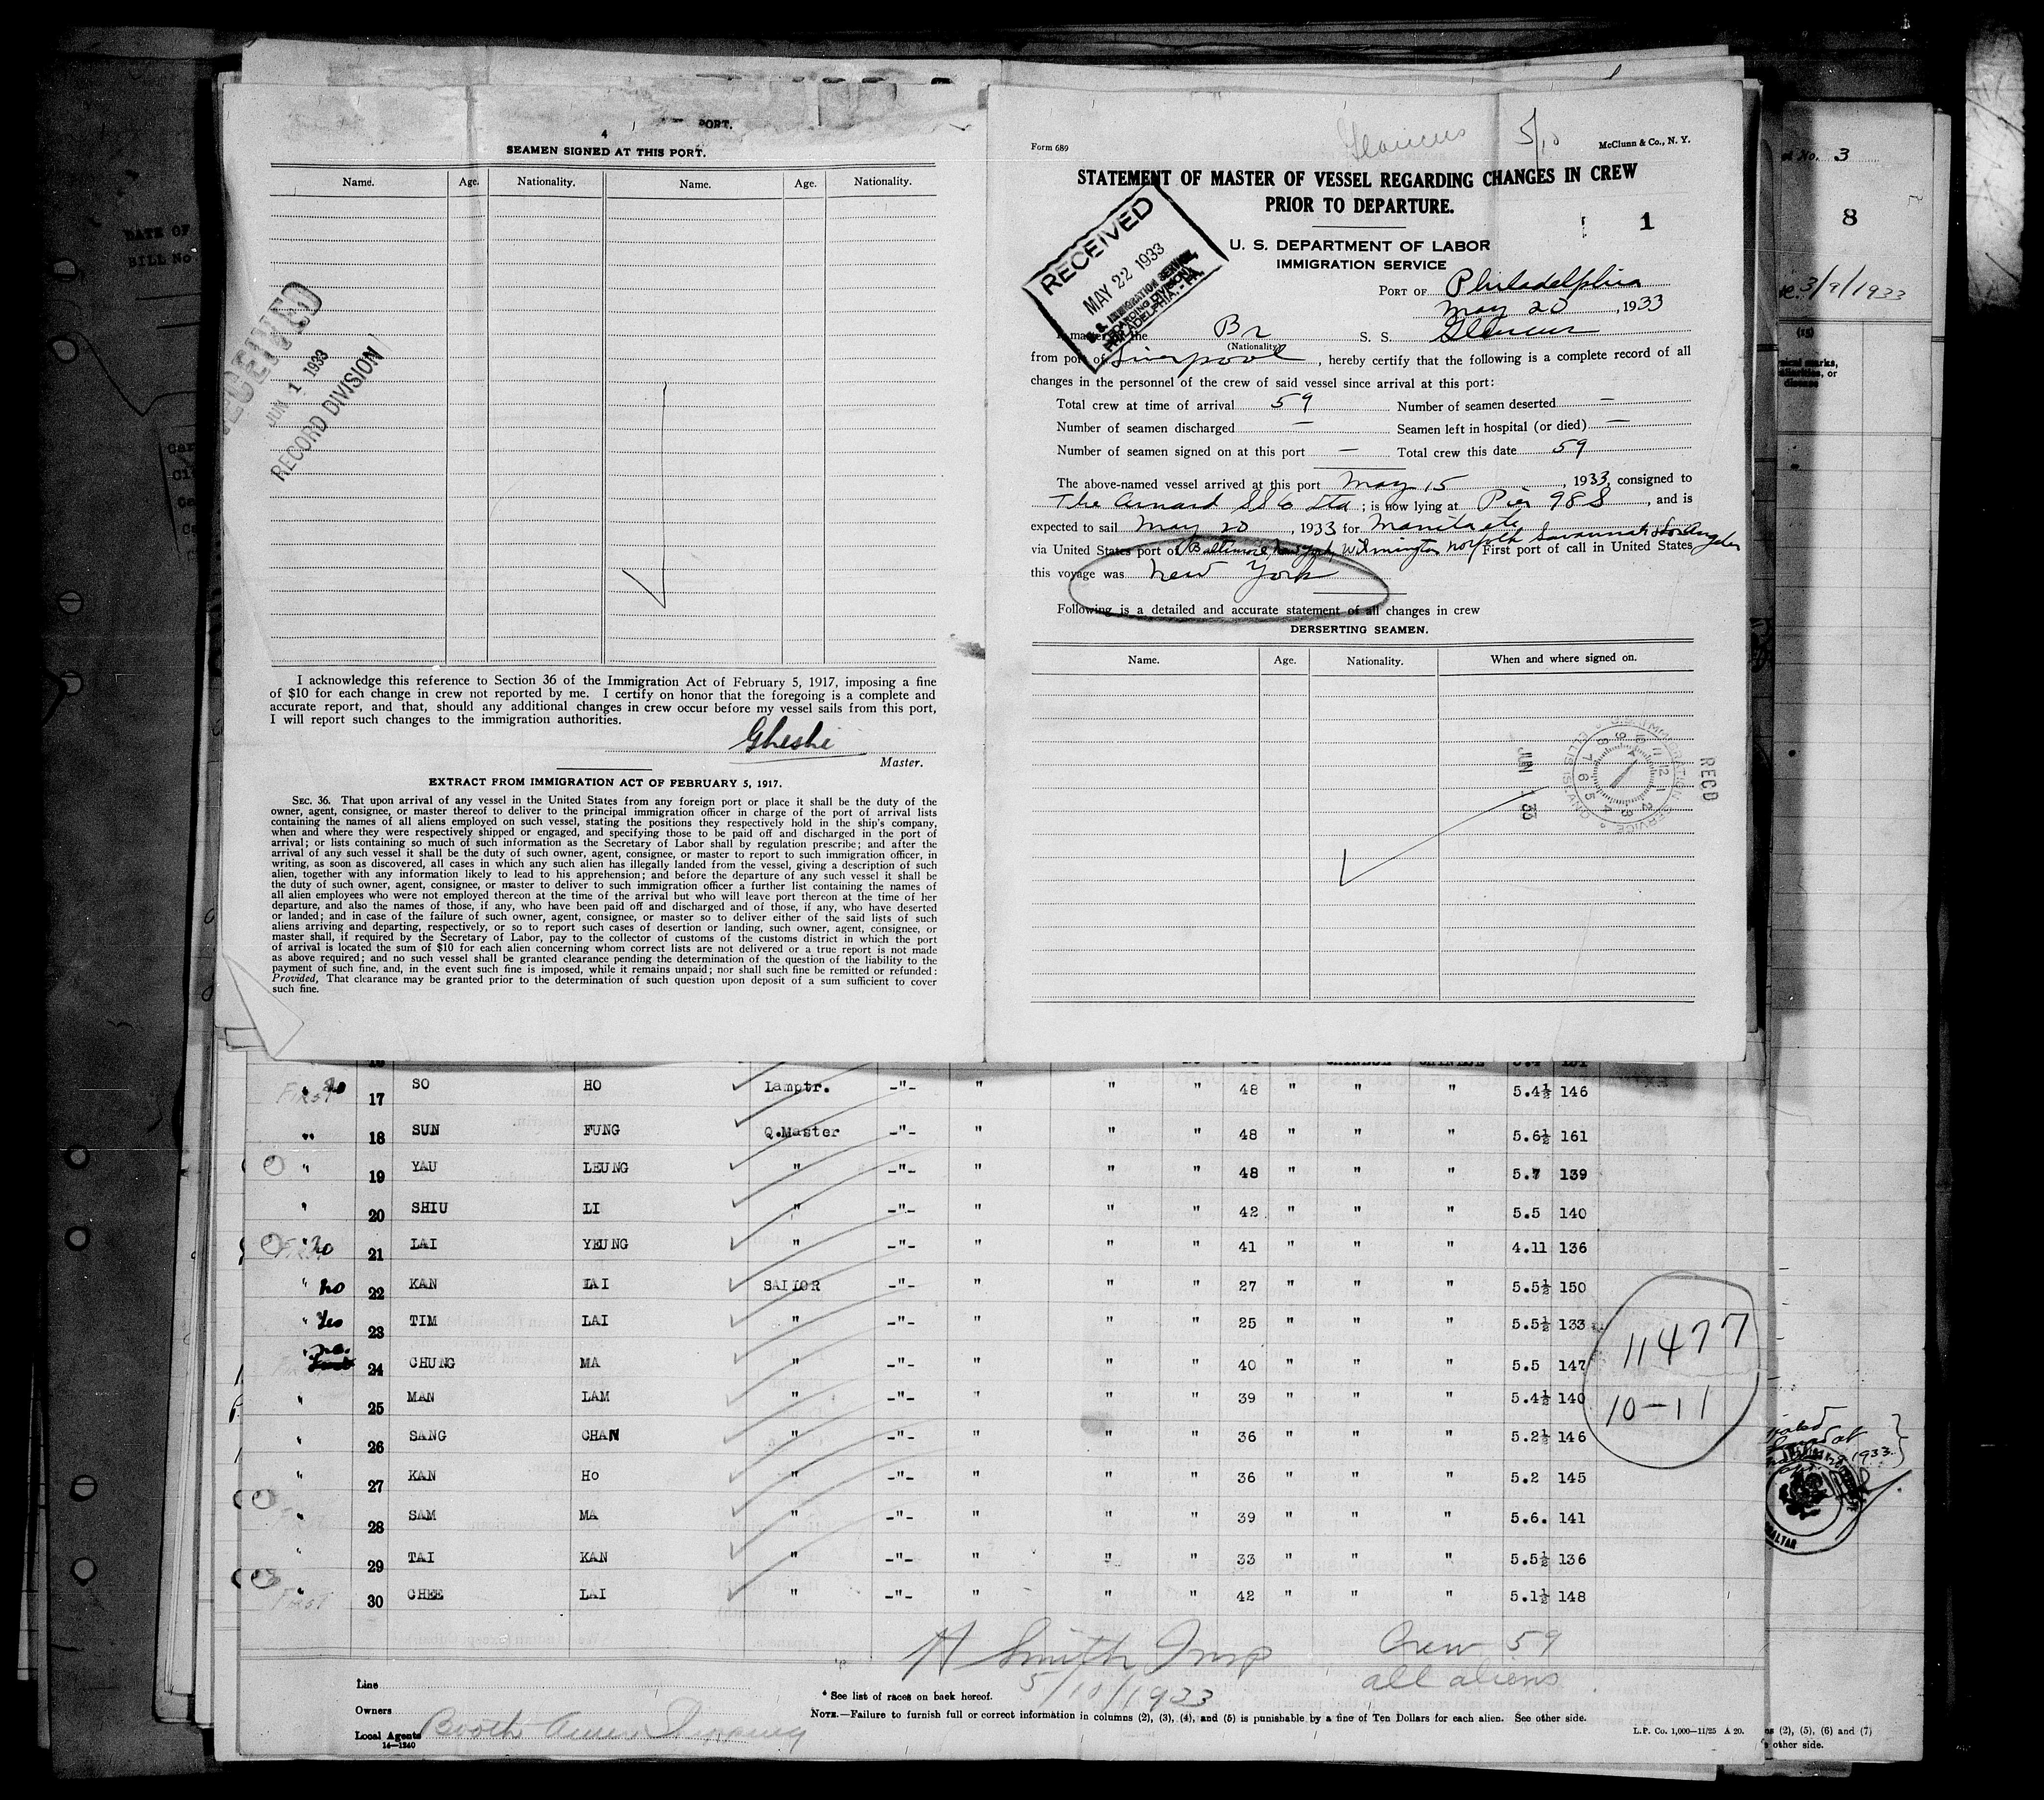 PORT.
4
SEAMEN SIGNED AT THIS PORT.
Name. Age. Nationality. Name. Age. Nationality.
RECEIVED
JUN 1 1933
RECORD DIVISION
I acknowledge this reference to Section 36 of the Immigration Act of February 5, 1917, imposing a fine
of $10 for each change in crew not reported by me. I certify on honor that the foregoing is a complete and
accurate report, and that, should any additional changes in crew occur before my vessel sails from this port,
I will report such changes to the immigration authorities.
Master.
EXTRACT FROM IMMIGRATION ACT OF FEBRUARY 5, 1917.
SEC. 36. That upon arrival of any vessel in the United States from any foreign port or place it shall be the duty of the
owner, agent, consignee, or master thereof to deliver to the principal immigration officer in charge of the port of arrival lists
containing the names of all aliens employed on such vessel, stating the positions they respectively hold in the ship's company,
when and where they were respectively shipped or engaged, and specifying those to be paid off and discharged in the port of
arrival; or lists containing so much of such information as the Secretary of Labor shall by regulation prescribe; and after the
arrival of any such vessel it shall be the duty of such owner, agent, consignee, or master to report to such immigration officer, in
writing, as soon as discovered, all cases in which any such alien has illegally landed from the vessel, giving a description of such
alien, together with any information likely to lead to his apprehension; and before the departure of any such vessel it shall be
the duty of such owner, agent, consignee, or master to deliver to such immigration officer a further list containing the names of
all alien employees who were not employed thereon at the time of the arrival but who will leave port thereon at the time of her
departure, and also the names of those, if any, who have been paid off and discharged and of those, if any, who have deserted
or landed; and in case of the failure of such owner, agent, consignee, or master so to deliver either of the said lists of such
aliens arriving and departing, respectively, or so to report such cases of desertion or landing, such owner, agent, consignee, or
master shall, if required by the Secretary of Labor, pay to the collector of customs of the customs district in which the port
of arrival is located the sum of $10 for each alien concerning whom correct lists are not delivered or a true report is not made
as above required; and no such vessel shall be granted clearance pending the determination of the question of the liability to the
payment of such fine, and, in the event such fine is imposed, while it remains unpaid; nor shall such fine be remitted or refunded:
Provided, That clearance may be granted prior to the determination of such question upon deposit of a sum sufficient to cover
such fine.
Glaucus 5/10
Form 689 McClunn & Co., N. Y.
STATEMENT OF MASTER OF VESSEL REGARDING CHANGES IN CREW
PRIOR TO DEPARTURE.
1
U. S. DEPARTMENT OF LABOR
IMMIGRATION SERVICE
RECEIVED
MAY 22 1933
U. S. IMMIGRATION SERVICE,
BOARDING DIVISION,
PHILADELPHIA, - PA.
PORT OF Philadelphia
May 20, 1933
master the Br S. S. Glaucus
(Nationality)
from port of Liverpool, hereby certify that the following is a complete record of all
changes in the personnel of the crew of said vessel since arrival at this port:
Total crew at time of arrival 59 Number of seamen deserted —
Number of seamen discharged — Seamen left in hospital (or died) —
Number of seamen signed on at this port — Total crew this date 59
The above-named vessel arrived at this port May 15, 1933, consigned to
The Cunard SS Co Ltd; is now lying at Pier 98 S, and is
expected to sail May 20, 1933 for
via United States port of Baltimore, New York, Wilmington Norfolk Savannah Los Angeles First port of call in United States
this voyage was New York
Following is a detailed and accurate statement of all changes in crew
DERSERTING SEAMEN.
Name. Age. Nationality. When and where signed on.
JUN 1 33
U.S. IMMIGRATION SERVICE ELLIS ISLAND
RECD
No. 3
8
3/9/1933
(15)
disease
17 SO HO Lamptr. -"- " " " 48 " " " 5.4½ 146
18 SUN FUNG Q.Master -"- " " " 48 " " " 5.6½ 161
" 19 YAU LEUNG " -"- " " " 48 " " " 5.7 139
" 20 SHIU LI " -"- " " " 42 " " " 5.5 140
" no 21 LAI YEUNG " -"- " " " 41 " " " 4.11 136
" no 22 KAN LAI SAILOR -"- " " " 27 " " " 5.5½ 150
" Yes 23 TIM LAI " -"- " " " 25 " " " 5.5½ 133
no. 24 CHUNG MA " -"- " " " 40 " " " 5.5 147
" 25 MAN LAM " -"- " " " 39 " " " 5.4½ 140
" 26 SANG CHAN " -"- " " " 36 " " " 5.2½ 146
" 27 KAN HO " -"- " " " 36 " " " 5.2 145
" 28 SAM MA " -"- " " " 39 " " " 5.6. 141
" 29 TAI KAN " -"- " " " 33 " " " 5.5½ 136
First 30 CHEE LAI " -"- " " " 42 " " " 5.1½ 148
11477
10-11
1933
H Smith Insp
5/10/1933
Crew 59
all aliens
Line
Owners
Local Agents Booth Amer Shipping
14—1240
* See list of races on back hereof.
NOTE.—Failure to furnish full or correct information in columns (2), (3), (4), and (5) is punishable by a fine of Ten Dollars for each alien. See other side.
L.P. Co. 1,000—11/25 A 20.
(2), (5), (6) and (7)
other side.